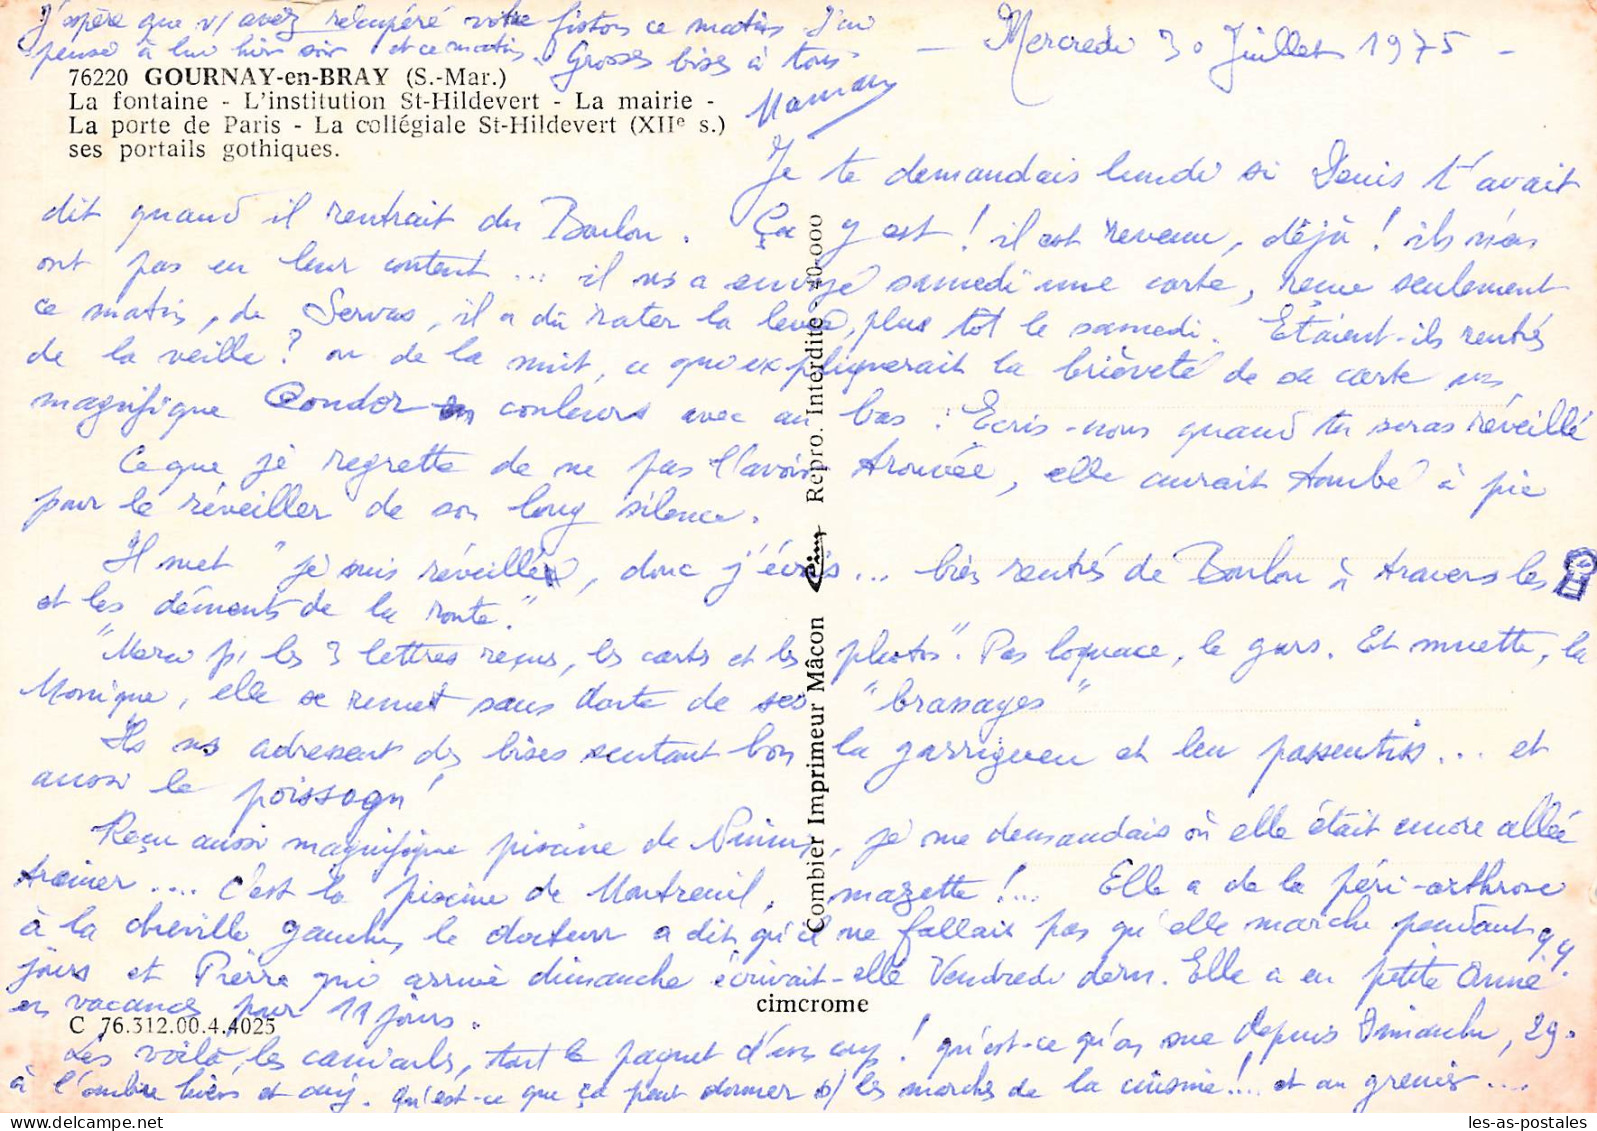 J'espère que v/ avez récupéré votre fiston ce matin J'ai
pensé à lui hier soir et ce matin. Grosses bises à tous
Maman
— Mercredi 30 Juillet 1975 -
76220 GOURNAY-en-BRAY (S.-Mar.)
La fontaine - L'institution St-Hildevert - La mairie -
La porte de Paris - La collégiale St-Hildevert (XIIe s.)
ses portails gothiques.
Je te demandais lundi si Denis t'avait
dit quand il rentrait du Boulou. Ça y est ! il est revenu, déjà ! ils n'en
ont pas eu leur content ... il ns a envoyé samedi une carte, reçue seulement
ce matin, de Servas, il a dû rater la levée, plus tôt le samedi. Etaient-ils rentrés
de la veille ? ou de la nuit, ce qui expliquerait la brièveté de sa carte un
magnifique Condor en couleurs avec au bas : Ecris-nous quand tu seras réveillé
Ce que je regrette de ne pas l'avoir trouvée, elle aurait tombé à pic
pour le réveiller de son long silence.
Il met "je suis réveillé, donc j'écris ... bien rentrés de Boulou à travers les
et les déments de la route."
"Merci pr les 3 lettres reçues, les cartes et les photos". Pas loquace, le gars. Et muette, la
Monique, elle se remet sans doute de ses "brassages"
Ils ns adressent des bises sentant bon la garrigueu et leu passentiss... et
aussi le poissogn !
Reçu aussi magnifique piscine de , je me demandais où elle était encore allée
trainer .... C'est la piscine de Montreuil, mazette !... Elle a de la péri-arthrose
à la cheville gauche, le docteur a dit qu'il ne fallait pas qu'elle marche pendant qq.
jours et Pierre qui arrive dimanche écrivait-elle Vendredi dern. Elle a eu petite Anne
en vacances pour 11 jours.
Les voilà, les canicules, tout le paquet d'un coup ! qu'est-ce qu'on sue depuis Dimanche, 29°
à l'ombre hier et auj. qu'est-ce que ça peut donner s/ les marches de la cuisine !... et au grenier ....
C 76.312.00.4.4025
cimcrome
Combier Imprimeur Mâcon Cim Repro. Interdite - 40.000
les-as-postales